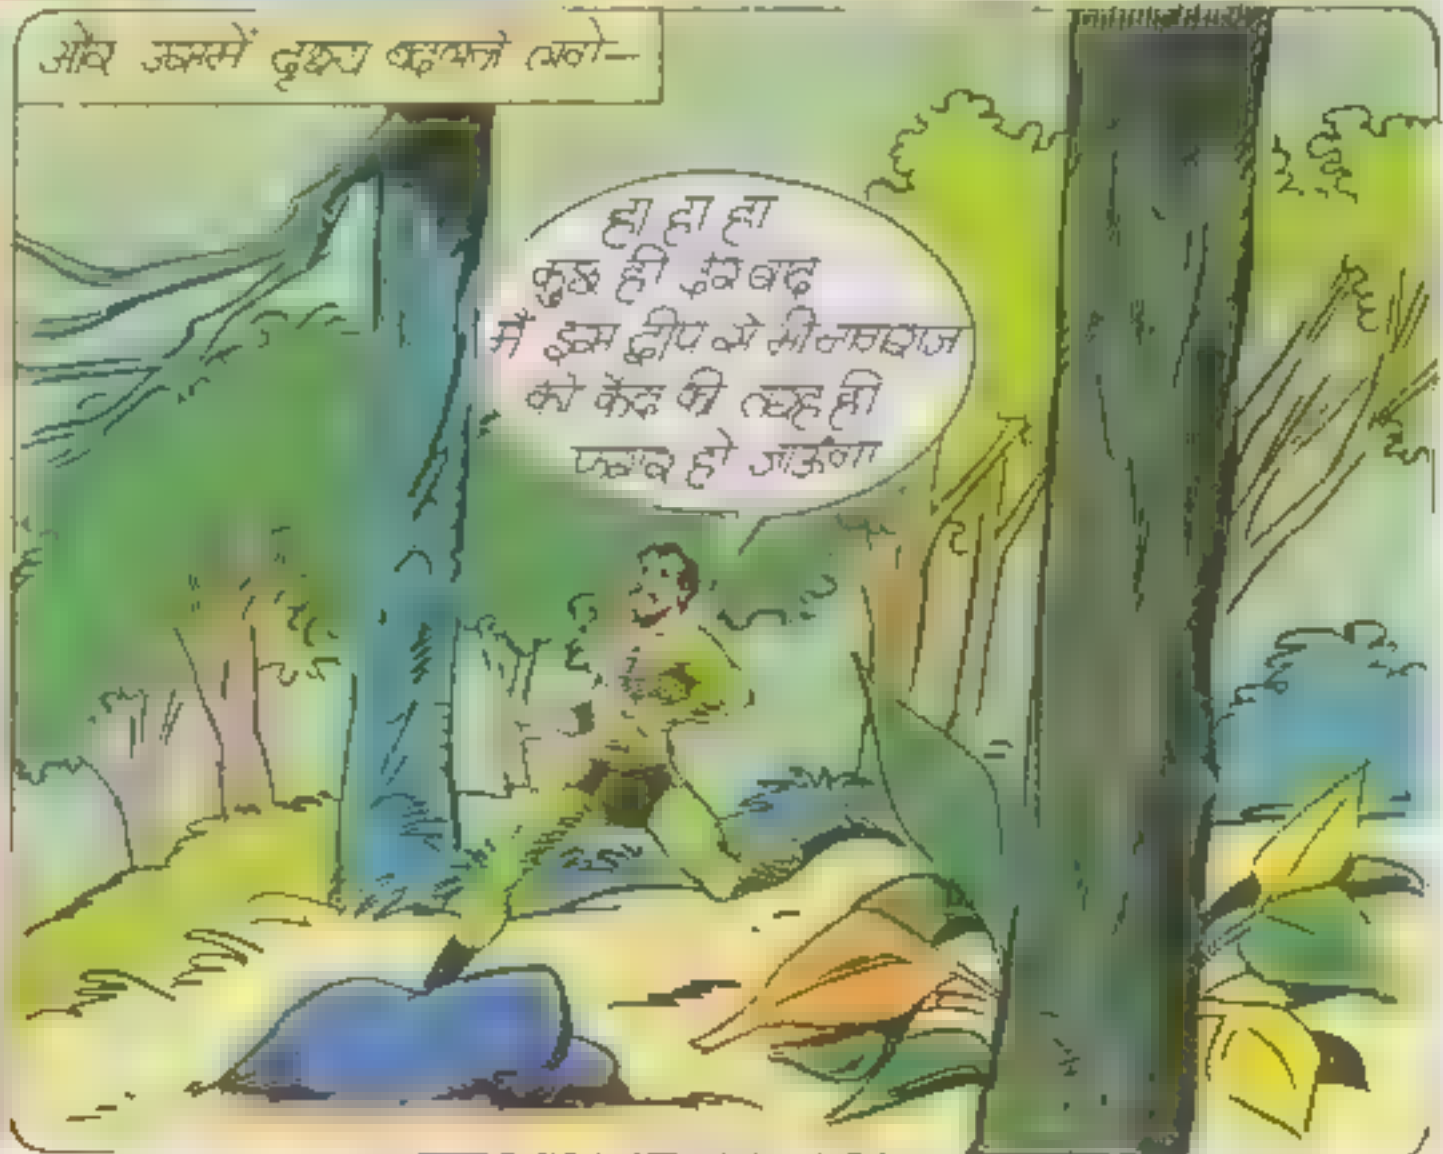 और उसमें दृश्य बदलने लगे—
हा हा हा
कुछ ही देर बाद
में इस द्वीप से भी नागराज
की कैद की तरह ही
फरार हो जाऊंगा